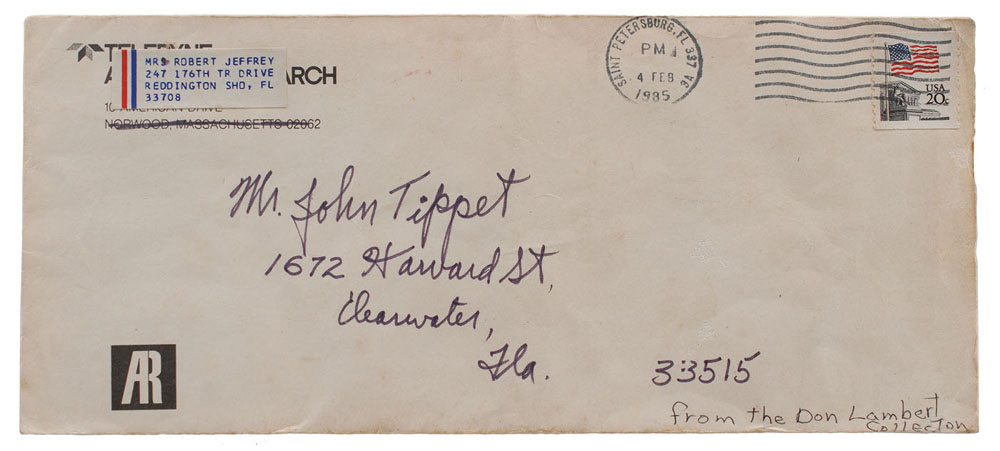 TELEDYNE
MRS ROBERT JEFFREY
247 176TH TR DRIVE
REDDINGTON SHO, FL
33708
NORWOOD, MASSACHUSETTS 02062
SAINT PETERSBURG, FL 337
PM
4 FEB
1985
3A
USA
20c
Mr. John Tippet
1672 Harvard St,
Clearwater,
Fla. 33515
AR
from the Don Lambert
Collecton